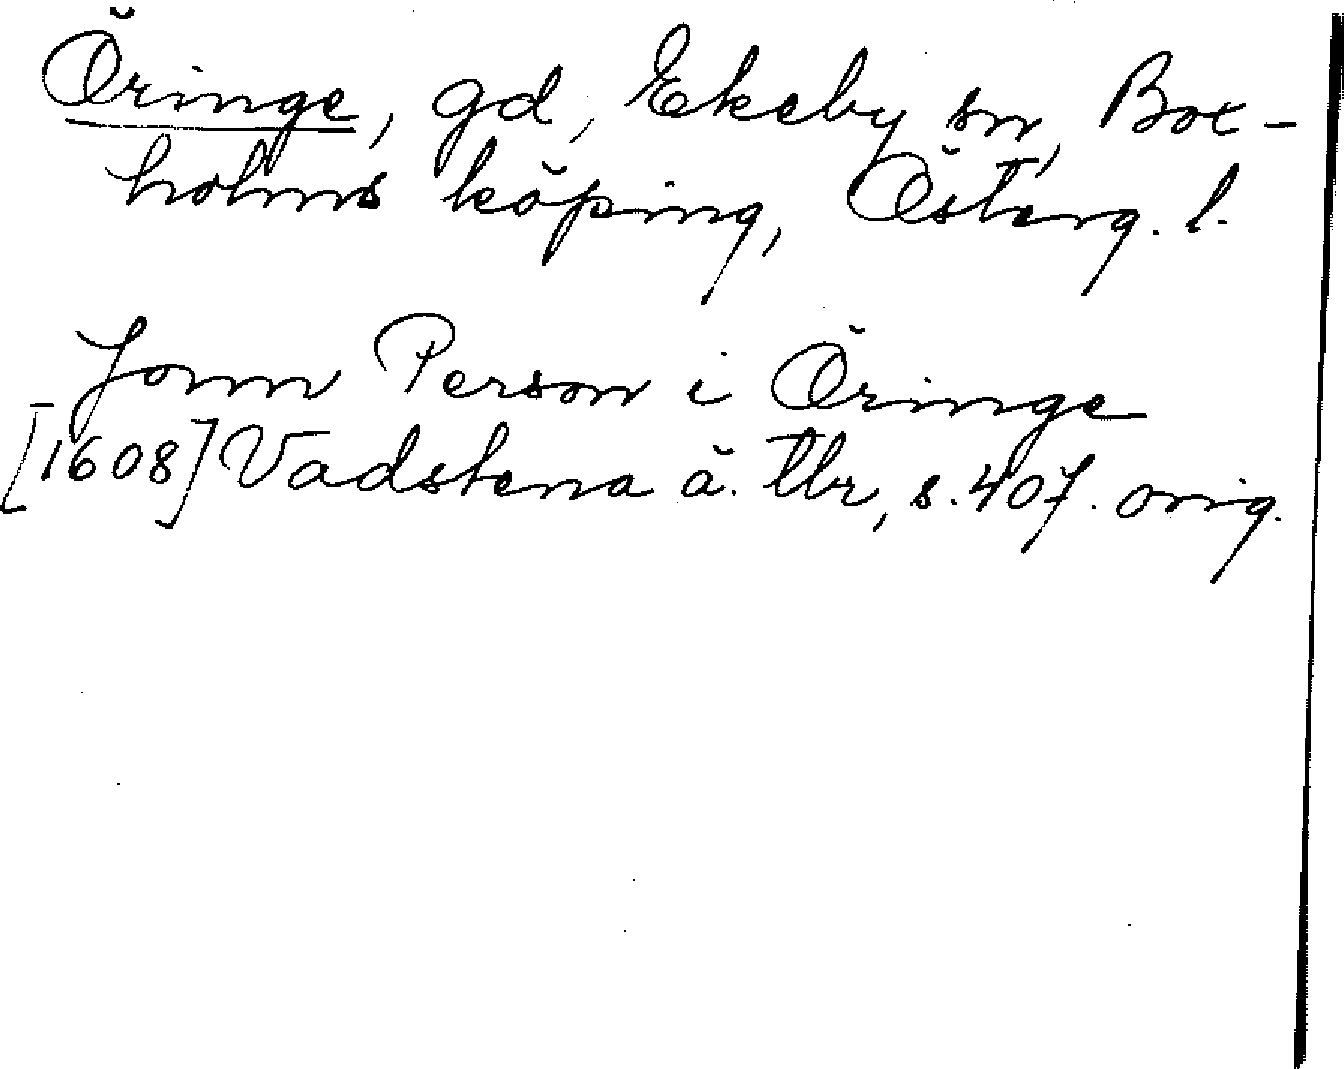 Öringe, gd, Ekeby sn, Box-
holms köping, Österg. l.
Jonn Person i Öringe
[1608] Vadstena ä. tbr, s. 407. orig.